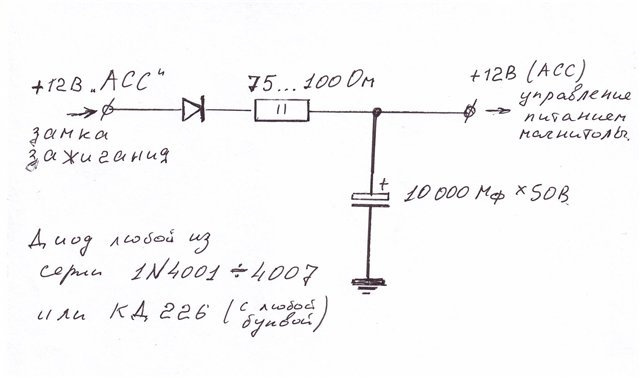 +12В „АСС"
замка
зажигания
75...100 Ом
II
+12В (АСС)
управление
питанием
магнитолы.
+
10 000 Мф × 50В
Диод любой из
серии 1N4001 ÷ 4007
или КД 226 (с любой
буквой)